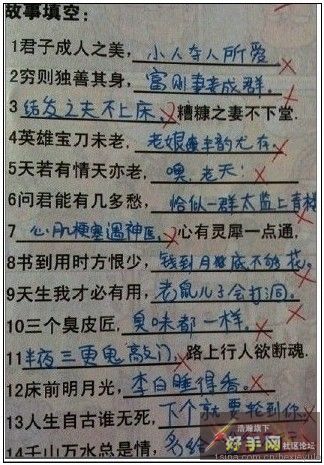 故事填空：
1君子成人之美，小人夺人所爱
2穷则独善其身，富则妻妾成群。
3结发之夫不上床，糟糠之妻不下堂.
4英雄宝刀未老，老娘丰韵尤存。
5天若有情天亦老，噢，老天！
6问君能有几多愁，恰似一群太监上青楼
7心肌梗塞遇神医，心有灵犀一点通，
8书到用时方恨少，钱到月底不够花。
9天生我才必有用，老鼠儿子会打洞。
10三个臭皮匠，臭味都一样。
11半夜三更鬼敲门，路上行人欲断魂.
12床前明月光，李白睡得香。
13人生自古谁无死，下个就要轮到你
14千山万水总是情，多给
浩瀚旗下
好手网